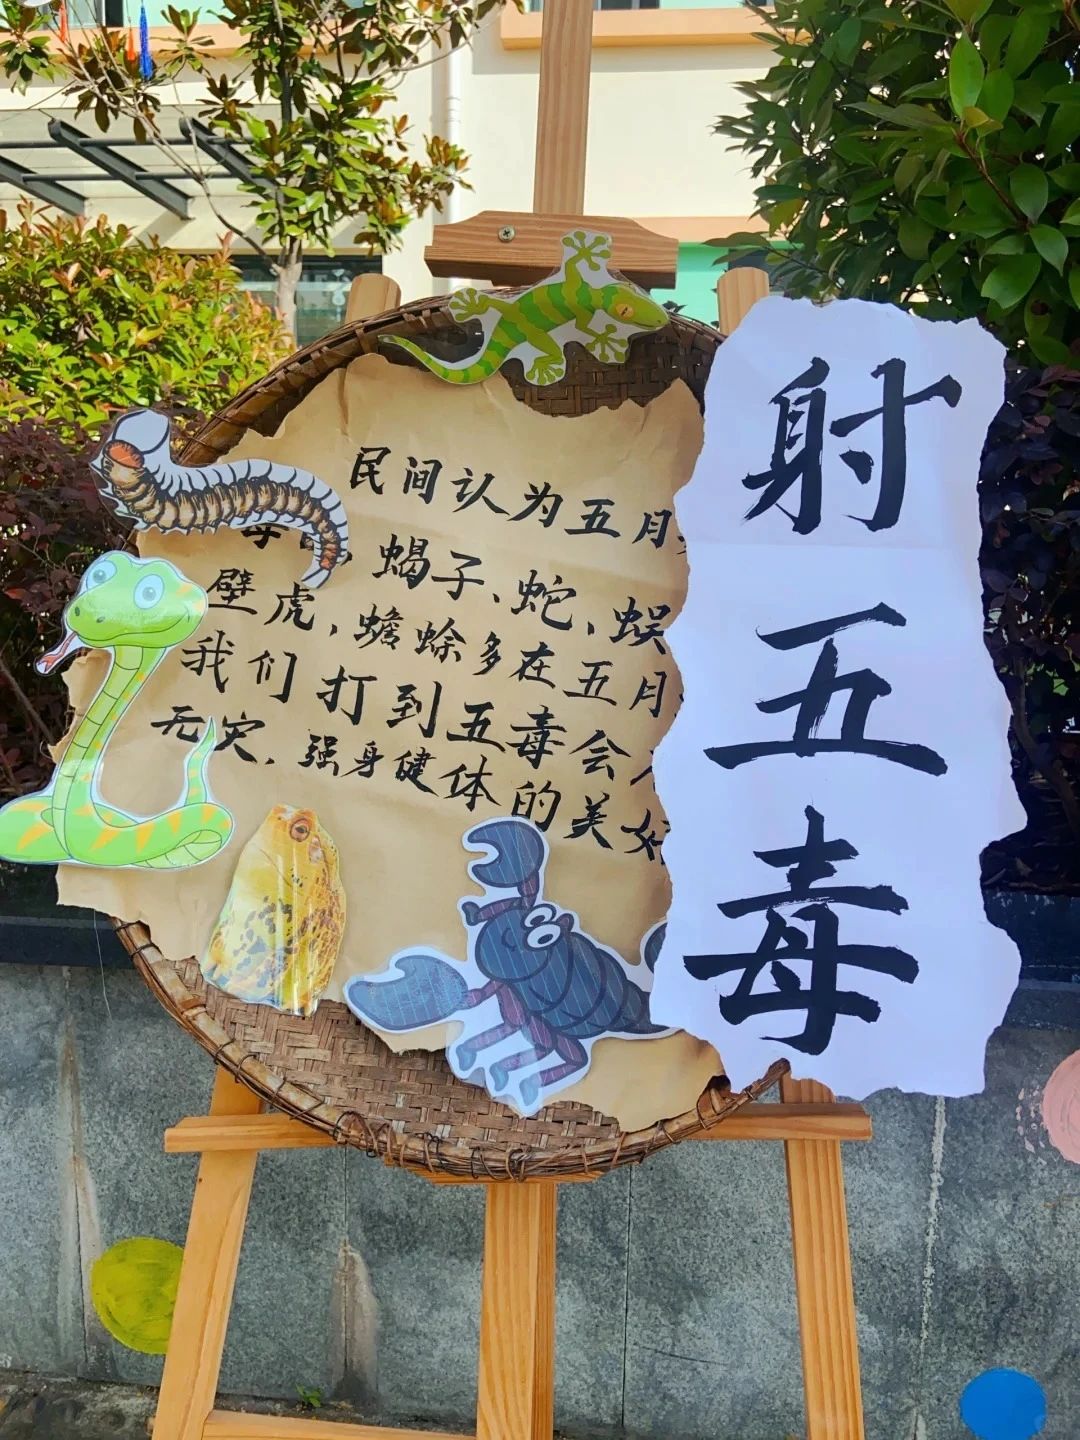 民间认为五月
蝎子、蛇、蜈
壁虎，蟾蜍多在五月
我们打到五毒会
无灾，强身健体的美好
射五毒